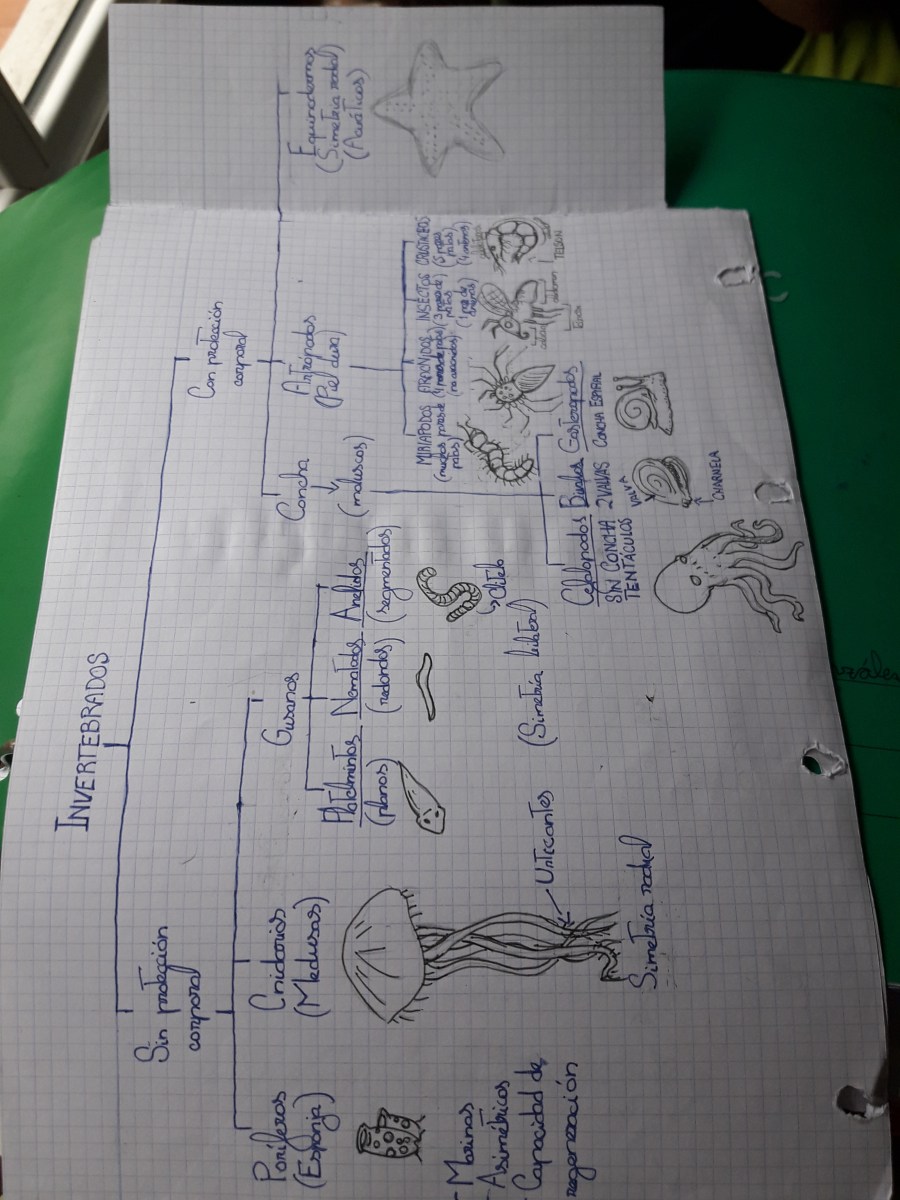 INVERTEBRADOS
Sin protección
corporal
Con protección
corporal
Poríferos
(Esponja)
- Marinos
- Asimétricos
- Capacidad de
regeneración
Cnidarios
(Medusas)
Urticantes
Simetría radial
Gusanos
Platelmintos
(planos)
Nematodos
(redondos)
Anélidos
(segmentados)
Clitelo
(Simetría bilateral)
Concha
(moluscos)
Cefalópodos
SIN CONCHA
TENTÁCULOS
Bivalvos
2 VALVAS
VALVA
CHARNELA
Gasterópodos
CONCHA ESPIRAL
Artrópodos
(Piel dura)
MIRIÁPODOS
(muchos pares de
patas)
ARÁCNIDOS
(4 pares de patas)
INSECTOS
(3 pares de
patas)
(1 par de
antenas)
cabeza
tórax
abdomen
CRUSTÁCEOS
(5 pares
patas)
(4 antenas)
TELSON
Equinodermos
(Simetría radial)
(Acuáticos)